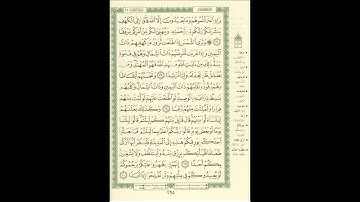 وَإِذِ ٱعْتَزَلْتُمُوهُمْ وَمَا يَعْبُدُونَ إِلَّا ٱللَّهَ فَأْوُۥٓا۟ إِلَى ٱلْكَهْفِ
يَنشُرْ لَكُمْ رَبُّكُم مِّن رَّحْمَتِهِۦ وَيُهَيِّئْ لَكُم مِّنْ أَمْرِكُم مِّرْفَقًا
۞ وَتَرَى ٱلشَّمْسَ إِذَا طَلَعَت تَّزَٰوَرُ عَن كَهْفِهِمْ ذَاتَ
ٱلْيَمِينِ وَإِذَا غَرَبَت تَّقْرِضُهُمْ ذَاتَ ٱلشِّمَالِ وَهُمْ فِى
فَجْوَةٍ مِّنْهُ ذَٰلِكَ مِنْ ءَايَٰتِ ٱللَّهِ مَن يَهْدِ ٱللَّهُ فَهُوَ ٱلْمُهْتَدِ وَمَن
يُضْلِلْ فَلَن تَجِدَ لَهُۥ وَلِيًّا مُّرْشِدًا ١٧ وَتَحْسَبُهُمْ أَيْقَاظًا
وَهُمْ رُقُودٌ وَنُقَلِّبُهُمْ ذَاتَ ٱلْيَمِينِ وَذَاتَ ٱلشِّمَالِ وَكَلْبُهُم
بَٰسِطٌ ذِرَاعَيْهِ بِٱلْوَصِيدِ لَوِ ٱطَّلَعْتَ عَلَيْهِمْ لَوَلَّيْتَ مِنْهُمْ
فِرَارًا وَلَمُلِئْتَ مِنْهُمْ رُعْبًا ١٨ وَكَذَٰلِكَ بَعَثْنَٰهُمْ
لِيَتَسَآءَلُوا۟ بَيْنَهُمْ قَالَ قَآئِلٌ مِّنْهُمْ كَمْ لَبِثْتُمْ قَالُوا۟ لَبِثْنَا
يَوْمًا أَوْ بَعْضَ يَوْمٍ قَالُوا۟ رَبُّكُمْ أَعْلَمُ بِمَا لَبِثْتُمْ فَٱبْعَثُوٓا۟
أَحَدَكُم بِوَرِقِكُمْ هَٰذِهِۦٓ إِلَى ٱلْمَدِينَةِ فَلْيَنظُرْ أَيُّهَآ أَزْكَىٰ
طَعَامًا فَلْيَأْتِكُم بِرِزْقٍ مِّنْهُ وَلْيَتَلَطَّفْ وَلَا يُشْعِرَنَّ
بِكُمْ أَحَدًا ١٩ إِنَّهُمْ إِن يَظْهَرُوا۟ عَلَيْكُمْ يَرْجُمُوكُمْ
أَوْ يُعِيدُوكُمْ فِى مِلَّتِهِمْ وَلَن تُفْلِحُوٓا۟ إِذًا أَبَدًا ٢٠
٢٩٥